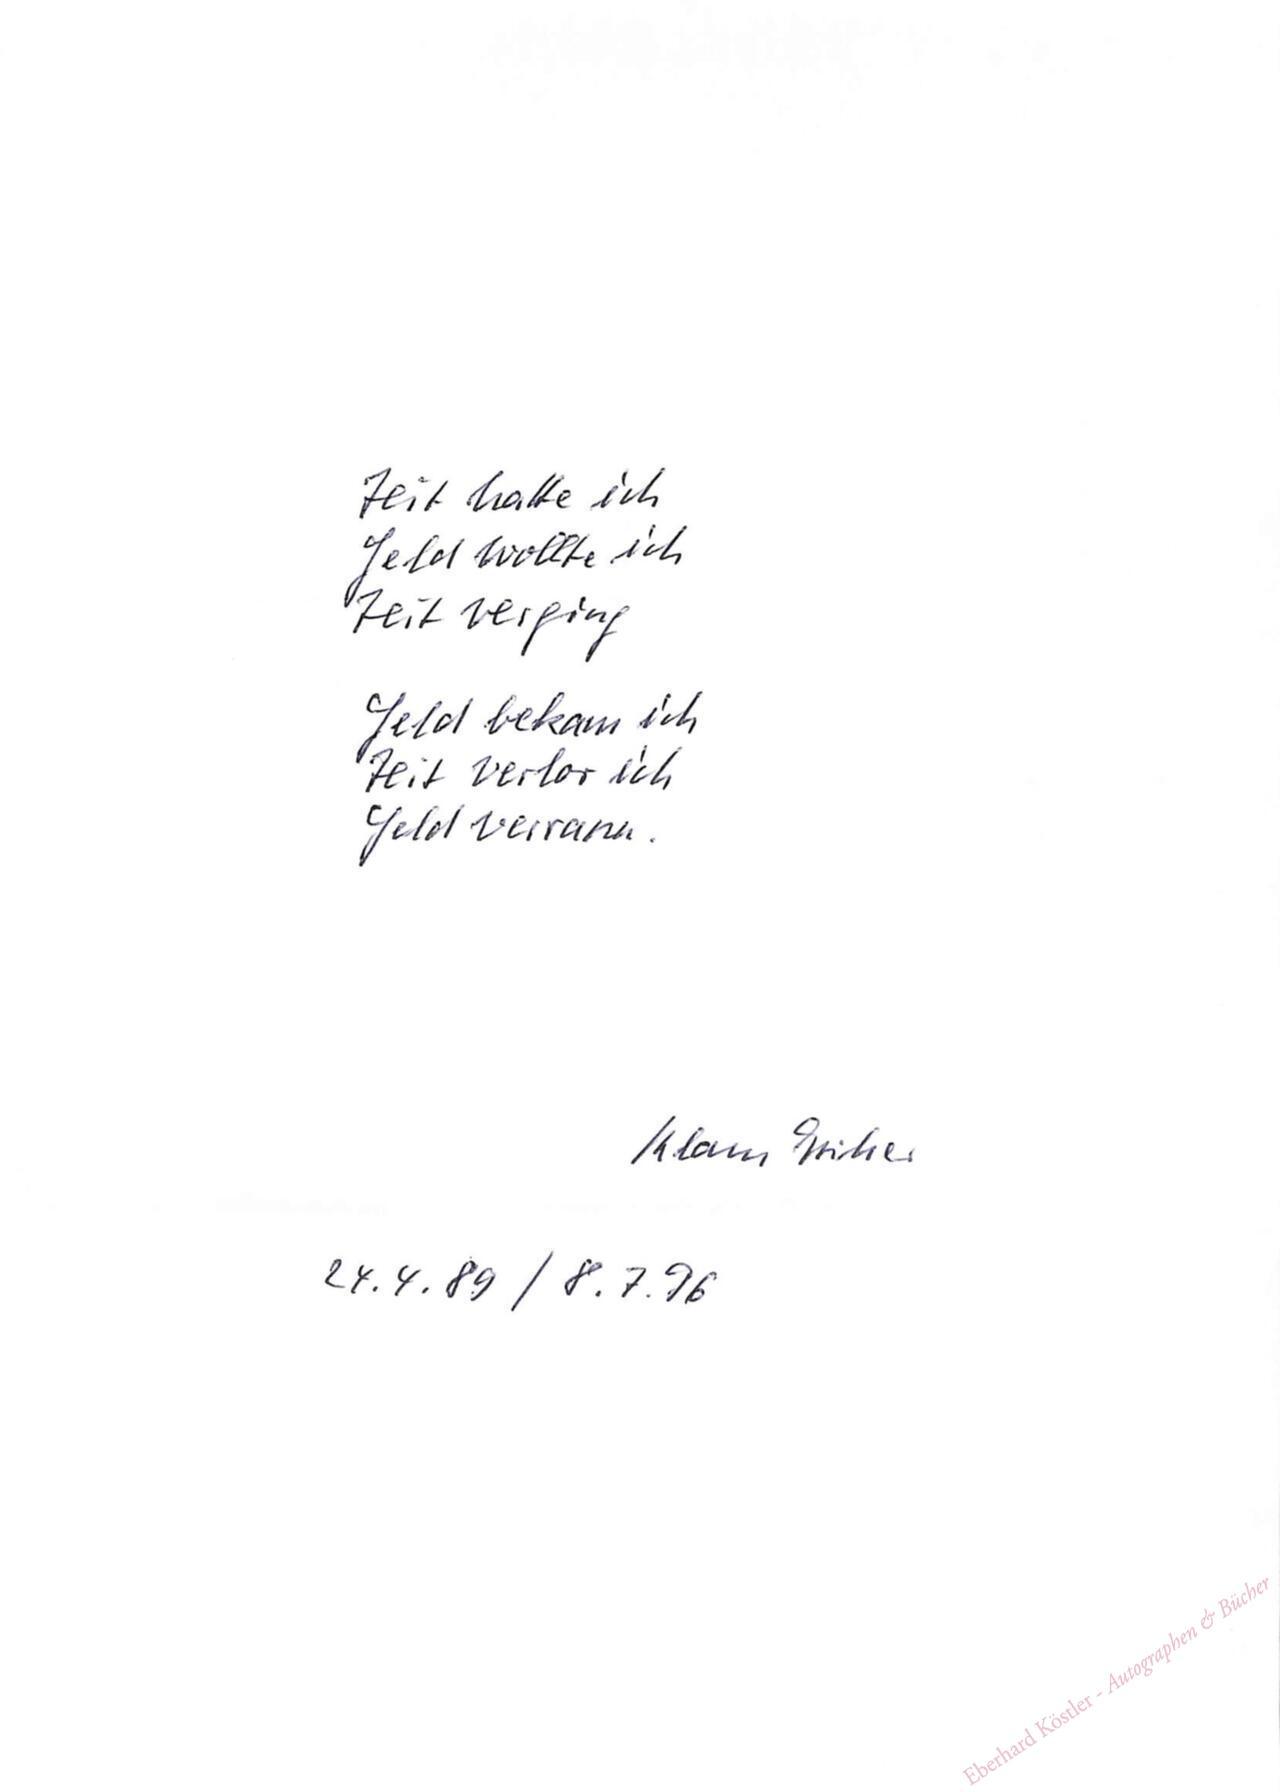 Zeit hatte ich
Geld wollte ich
Zeit verging
Geld bekam ich
Zeit verlor ich
Geld verrann.
Klaus
24.4.89 / 8.7.96
Eberhard Köstler - Autographen & Bücher